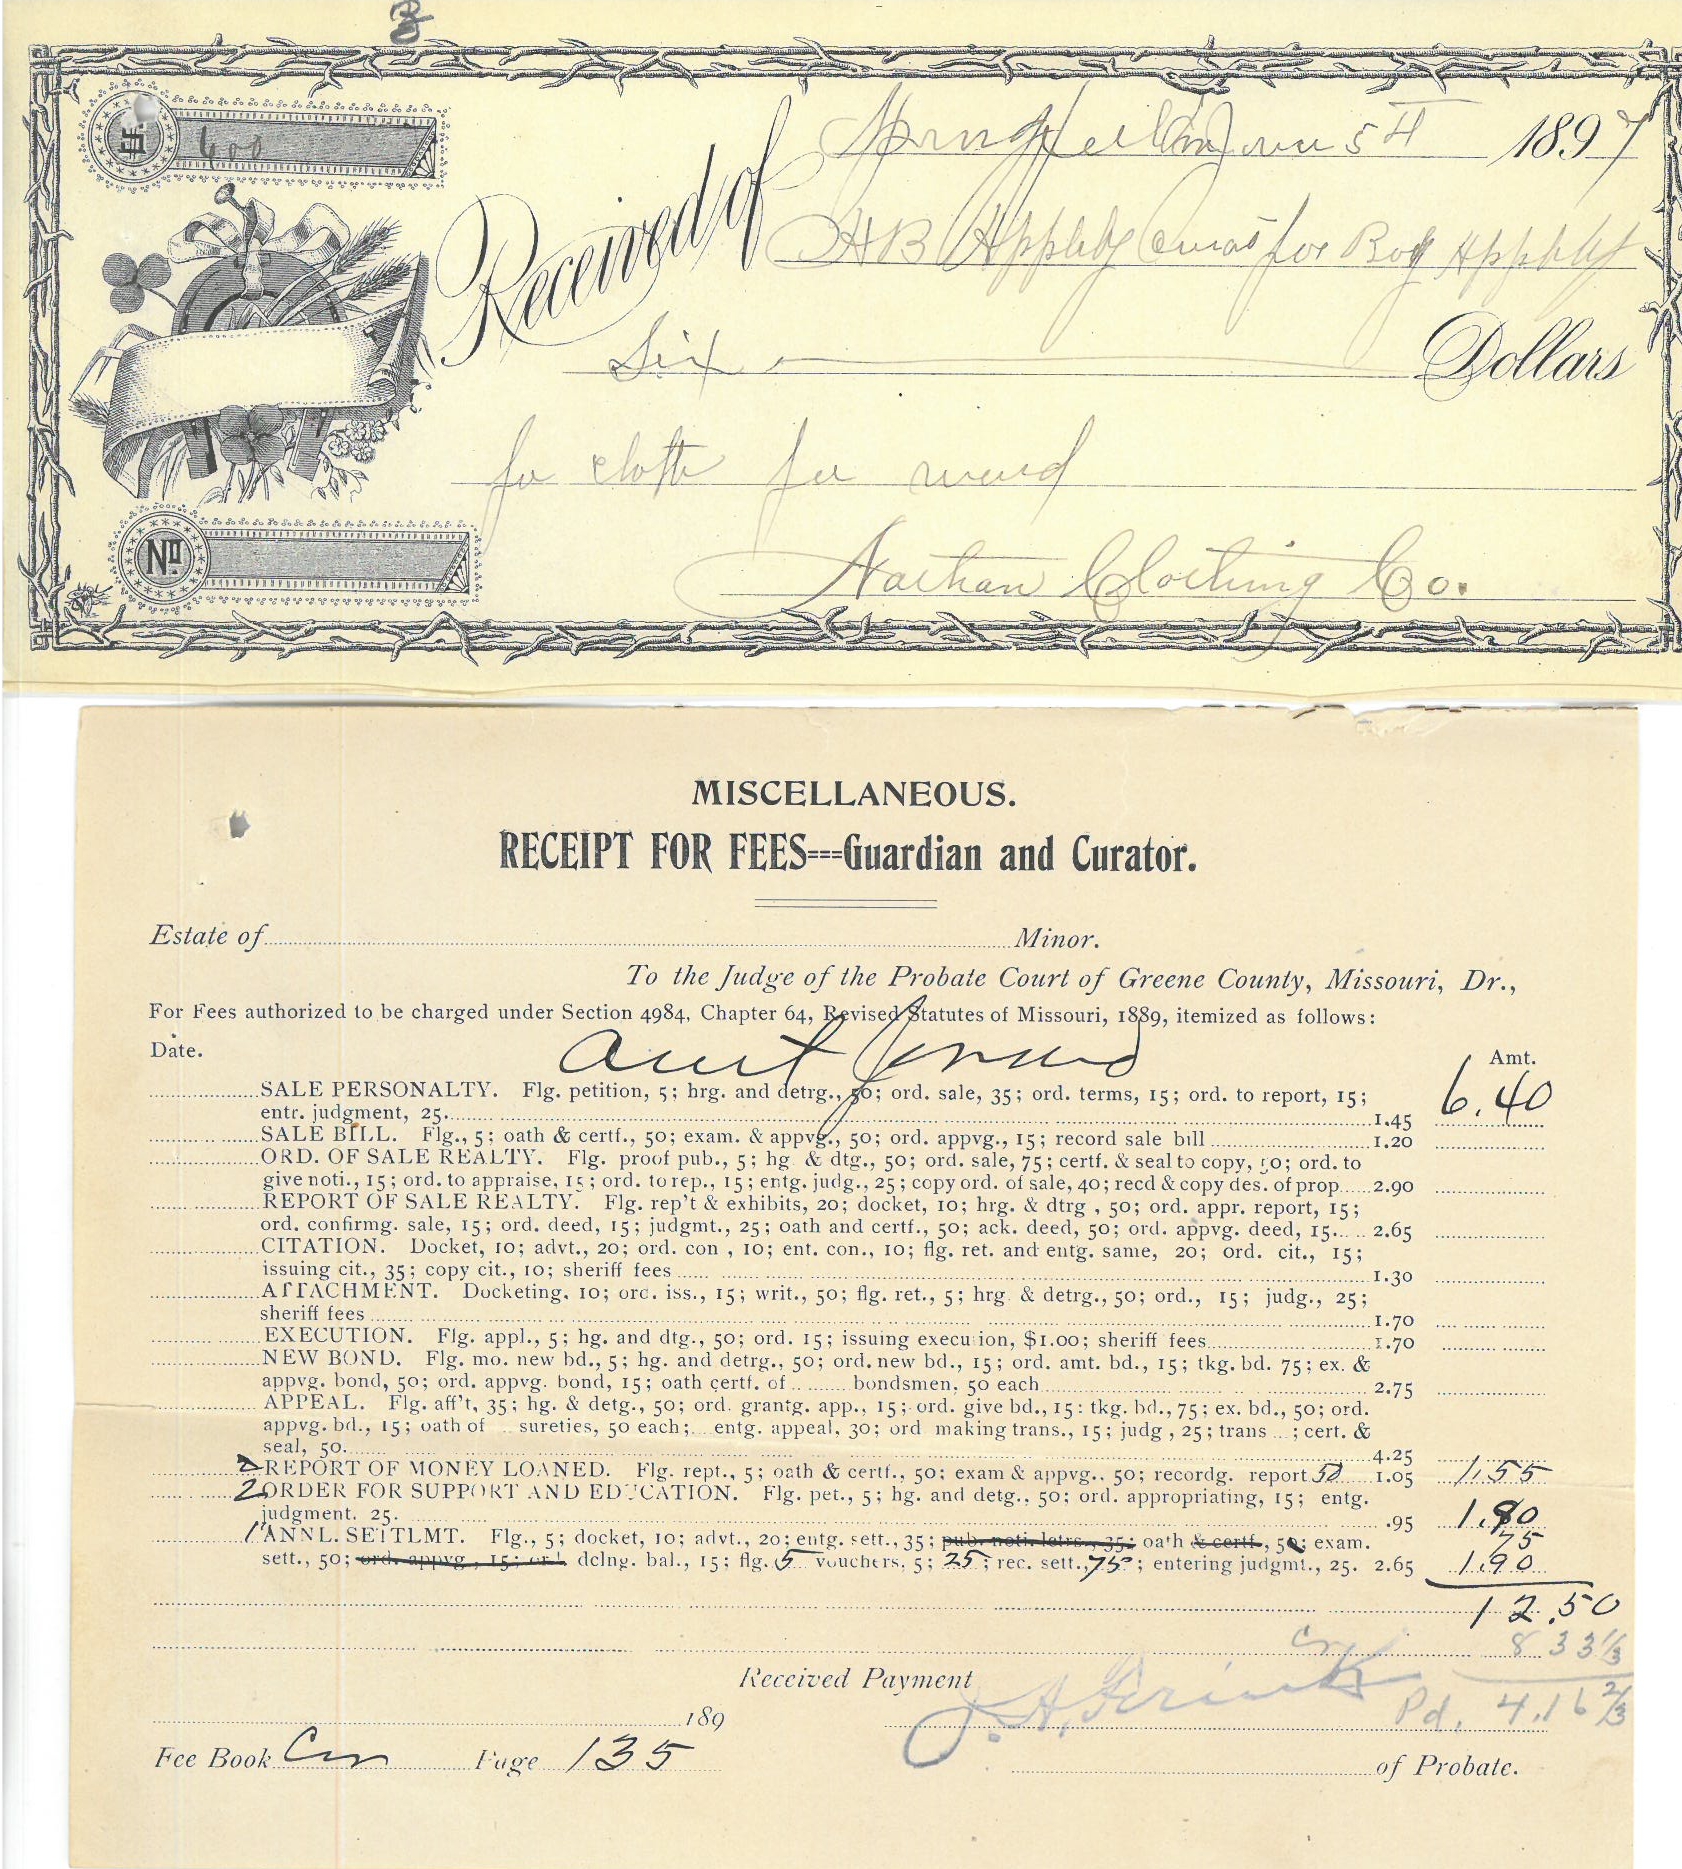 $ 600
Springfield Mo June 5th 1897
Received of H B Appleby Curat for Roy Appleby
Six Dollars
for cloth for ward
No.
Nathan Clothing Co.
MISCELLANEOUS.
RECEIPT FOR FEES===Guardian and Curator.
Estate of Minor.
To the Judge of the Probate Court of Greene County, Missouri, Dr.,
For Fees authorized to be charged under Section 4984, Chapter 64, Revised Statutes of Missouri, 1889, itemized as follows:
Date. Amt.
amt 6.40
SALE PERSONALTY. Flg. petition, 5; hrg. and detrg., 50; ord. sale, 35; ord. terms, 15; ord. to report, 15;
entr. judgment, 25. 1.45
SALE BILL. Flg., 5; oath & certf., 50; exam. & appvg., 50; ord. appvg., 15; record sale bill 1.20
ORD. OF SALE REALTY. Flg. proof pub., 5; hg & dtg., 50; ord. sale, 75; certf. & seal to copy, 50; ord. to
give noti., 15; ord. to appraise, 15; ord. to rep., 15; entg. judg., 25; copy ord. of sale, 40; recd & copy des. of prop 2.90
REPORT OF SALE REALTY. Flg. rep't & exhibits, 20; docket, 10; hrg. & dtrg , 50; ord. appr. report, 15;
ord. confirmg. sale, 15; ord. deed, 15; judgmt., 25; oath and certf., 50; ack. deed, 50; ord. appvg. deed, 15. 2.65
CITATION. Docket, 10; advt., 20; ord. con , 10; ent. con., 10; flg. ret. and entg. same, 20; ord. cit., 15;
issuing cit., 35; copy cit., 10; sheriff fees 1.30
ATTACHMENT. Docketing, 10; ord. iss., 15; writ., 50; flg. ret., 5; hrg & detrg., 50; ord., 15; judg., 25;
sheriff fees 1.70
EXECUTION. Flg. appl., 5; hg. and dtg., 50; ord. 15; issuing execu ion, $1.00; sheriff fees 1.70
NEW BOND. Flg. mo. new bd., 5; hg. and detrg., 50; ord. new bd., 15; ord. amt. bd., 15; tkg. bd. 75; ex. &
appvg. bond, 50; ord. appvg. bond, 15; oath certf. of bondsmen, 50 each 2.75
APPEAL. Flg. aff't, 35; hg. & detg., 50; ord. grantg. app., 15; ord. give bd., 15: tkg. bd., 75; ex. bd., 50; ord.
appvg. bd., 15; oath of sureties, 50 each; entg. appeal, 30; ord making trans., 15; judg , 25; trans ; cert. &
seal, 50. 4.25
2 REPORT OF MONEY LOANED. Flg. rept., 5; oath & certf., 50; exam & appvg., 50; recordg. report 50 1.05 1.55
2 ORDER FOR SUPPORT AND EDUCATION. Flg. pet., 5; hg. and detg., 50; ord. appropriating, 15; entg.
judgment. 25. .95 1.90
1 ANNL. SETTLMT. Flg., 5; docket, 10; advt., 20; entg. sett., 35; pub. noti. letrs., 35; oath & certf., 50; exam. 75
sett., 50; ord. appvg., 15; or'l. dclng. bal., 15; flg. 5 vouchers, 5; 25; rec. sett., 75; entering judgmt., 25. 2.65 1.90
12.50
Cr 8 33 1/3
Received Payment
Pd. 4.16 2/3
189
Fee Book Cur Page 135
of Probate.